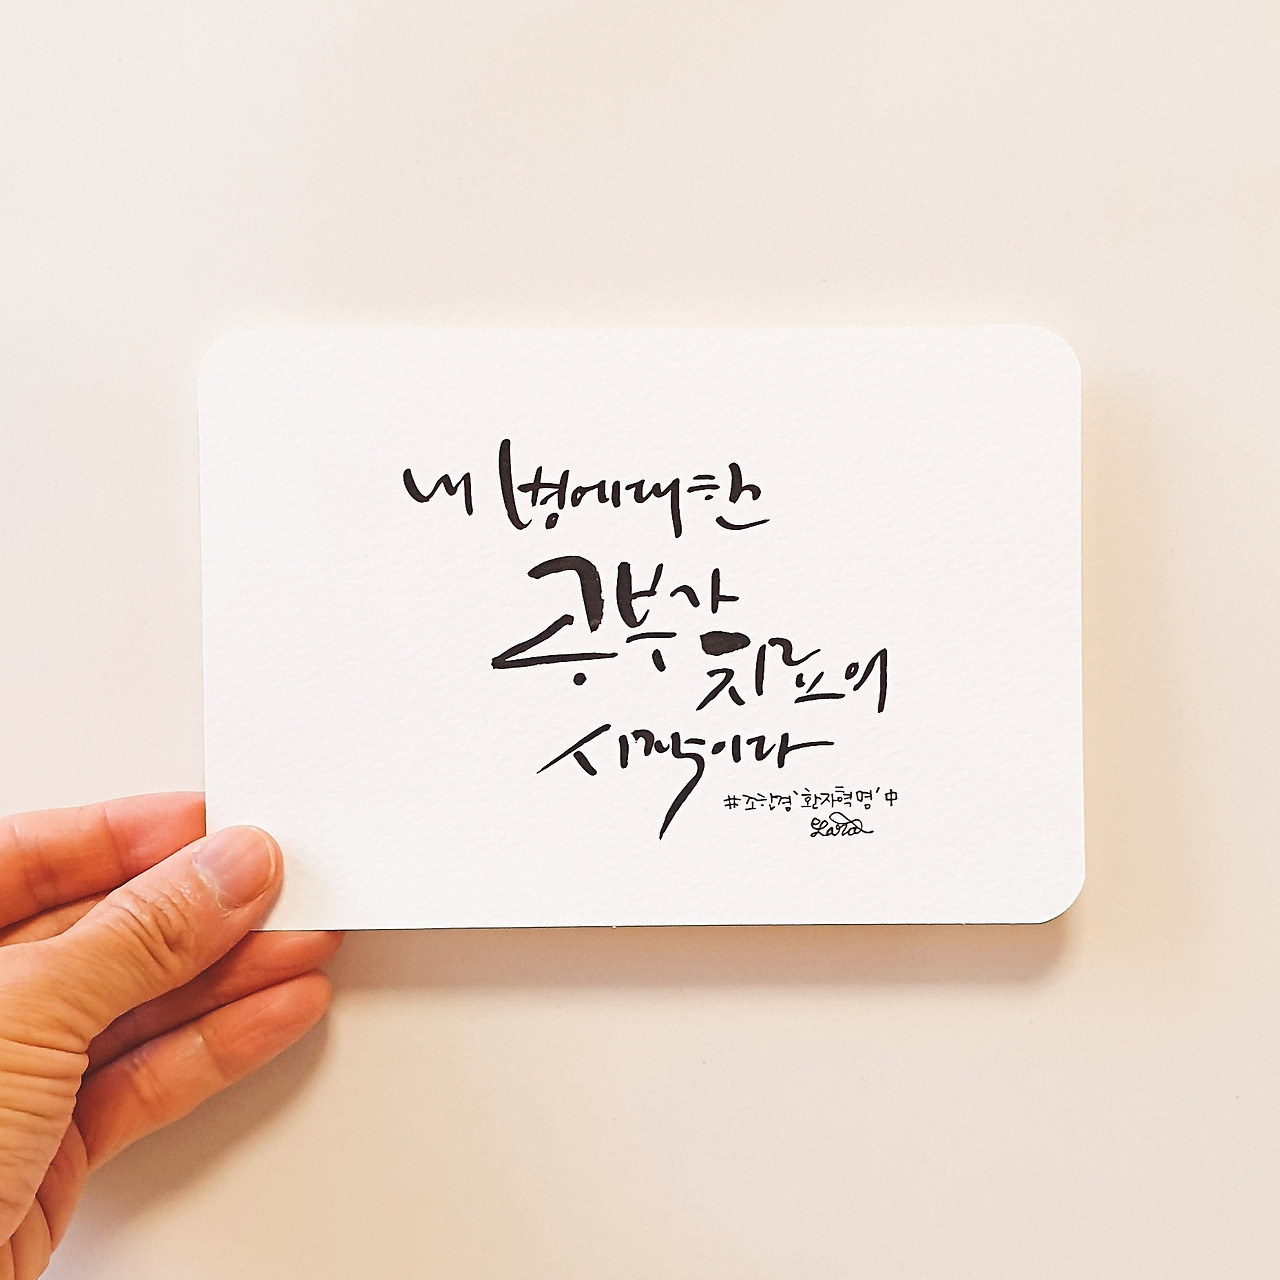 내 병에대한
공부가
치료의
시작이라
#조한경 '환자혁명' 中
Lara